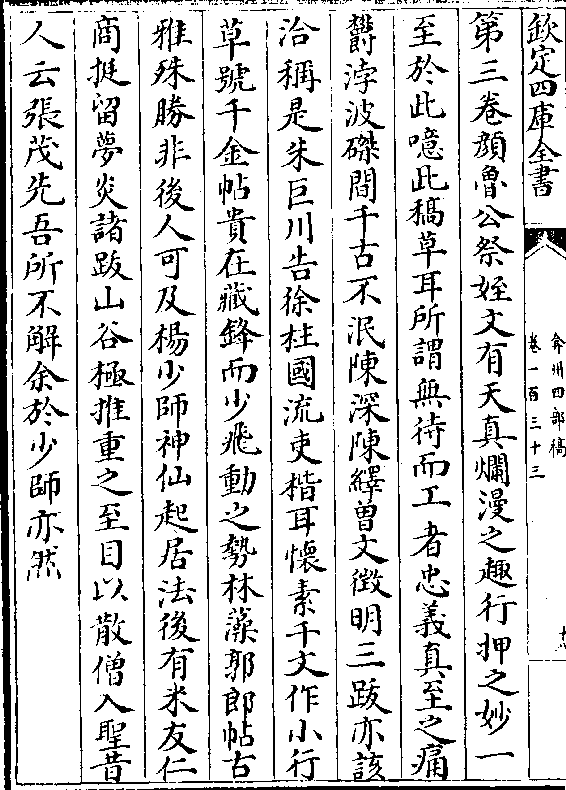 欽定四庫全書
弇州四部稿
卷一百三十三
十八
第三卷顔魯公祭姪文有天真爛漫之趣行押之妙一
至於此噫此稿草耳所謂無待而工者忠義真至之痛
欝浡波磔間千古不泯陳深陳繹曾文徵明三跋亦該
洽稱是朱巨川告徐柱國流吏楷耳懷素千文作小行
草號千金帖貴在藏鋒而少飛動之勢林藻郭郎帖古
雅殊勝非後人可及楊少師神仙起居法後有米友仁
商挺留夢炎諸跋山谷極推重之至目以散僧入聖昔
人云張茂先吾所不解余於少師亦然